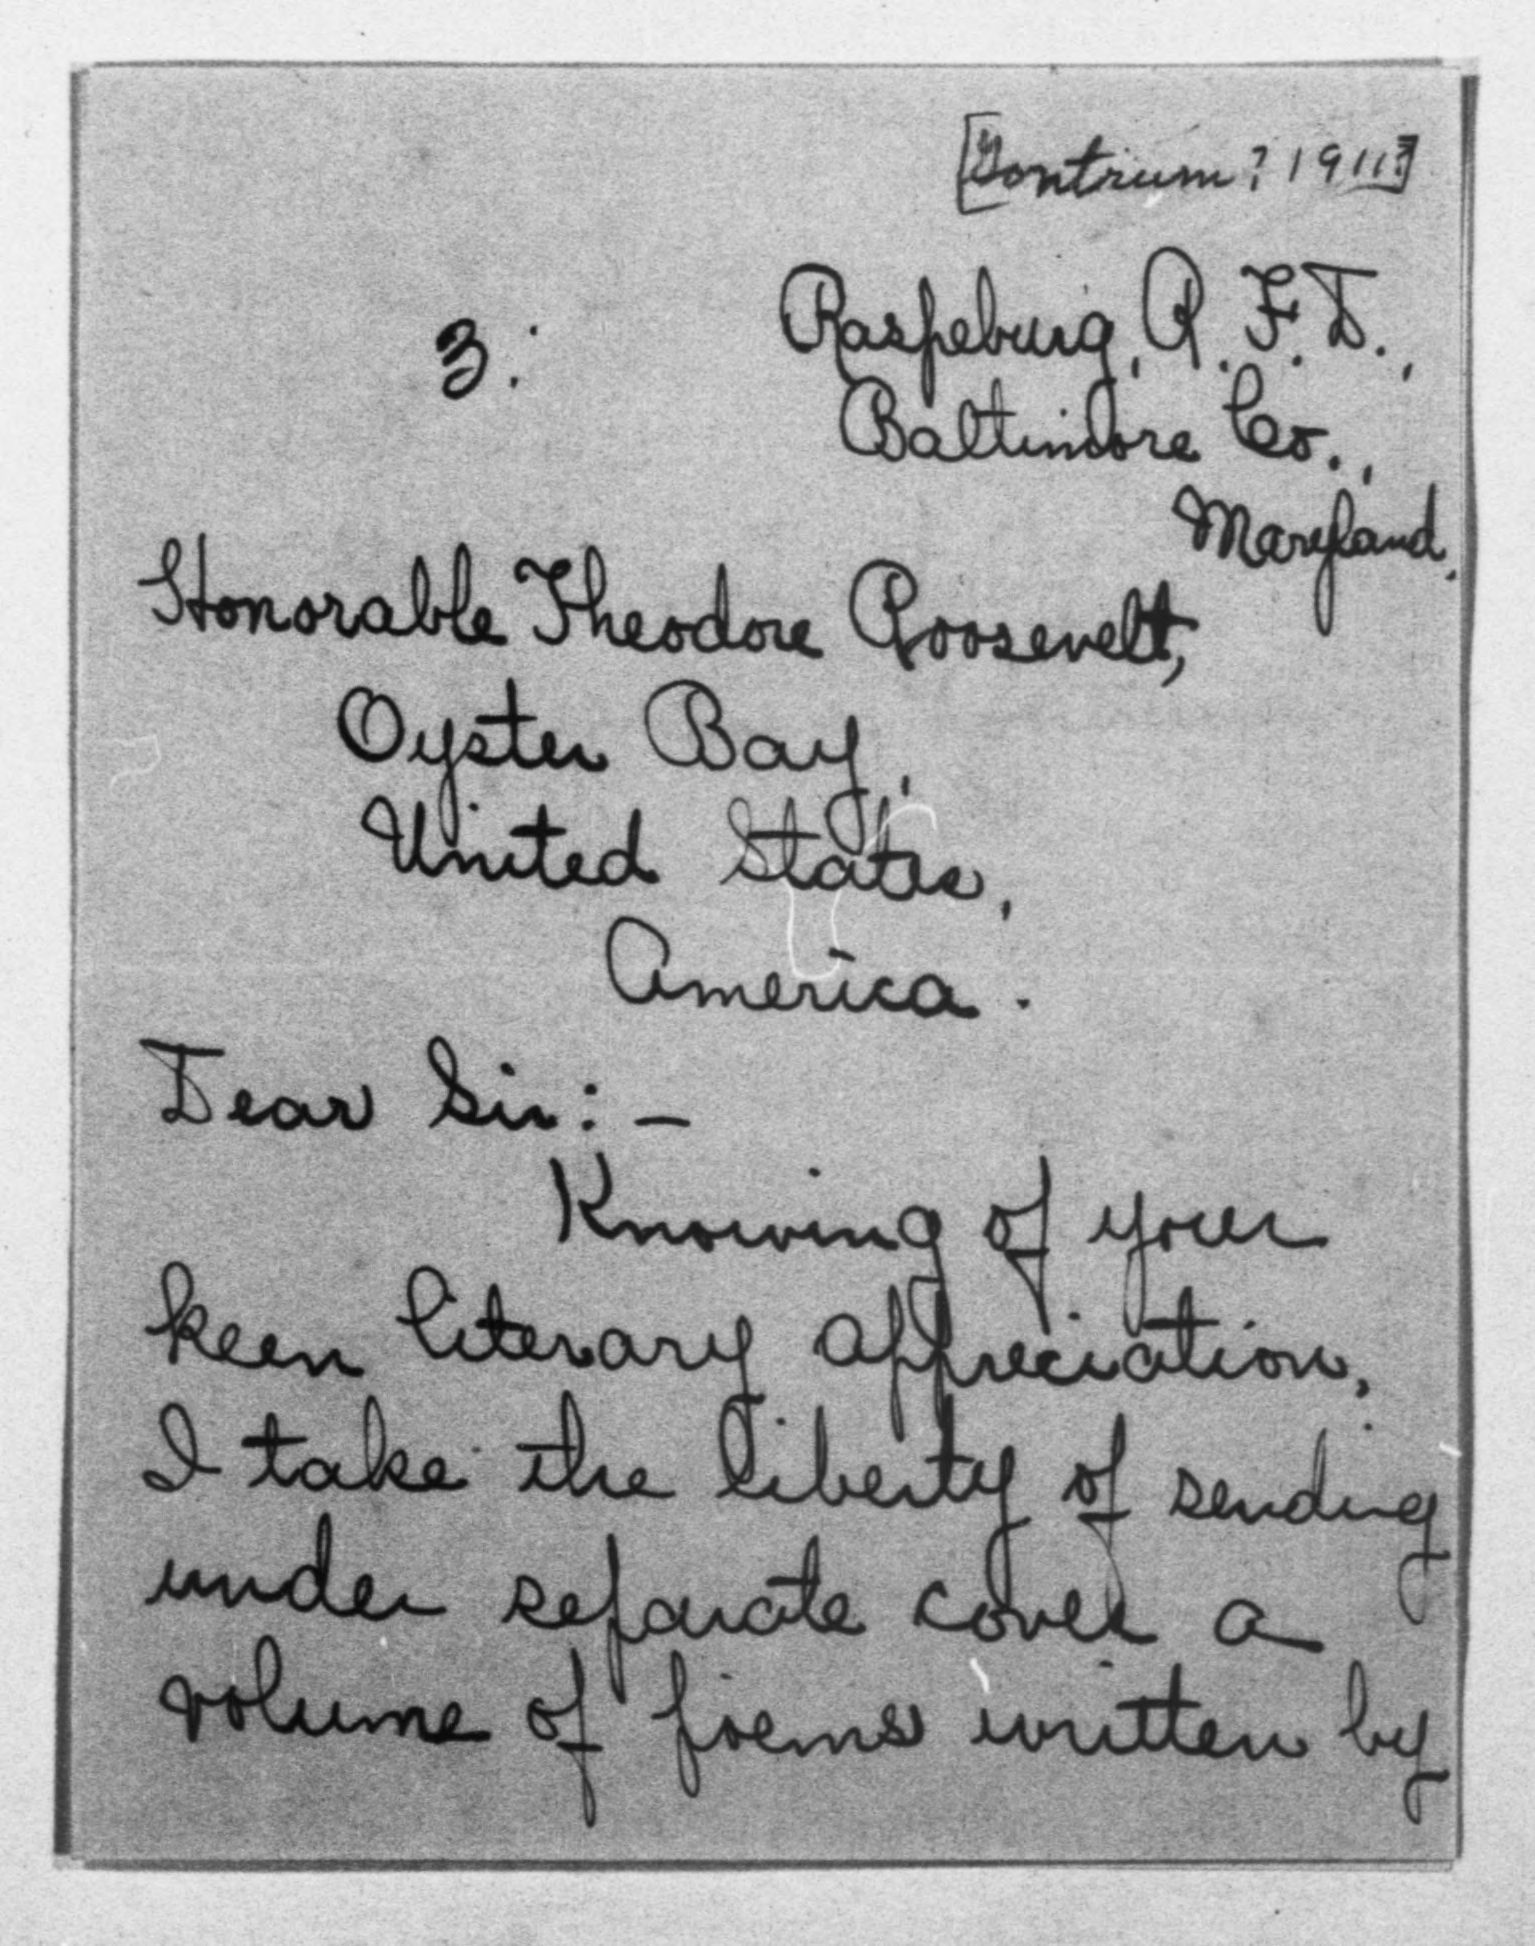 [Gontrum? 1911?]
Raspeburg, R. F. D.,
3.
Baltimore Co.,
Maryland.
Honorable Theodore Roosevelt,
Oyster Bay,
United States,
America.
Dear Sir:—
Knowing of your
keen literary appreciation,
I take the liberty of sending
under separate cover a
volume of poems written by